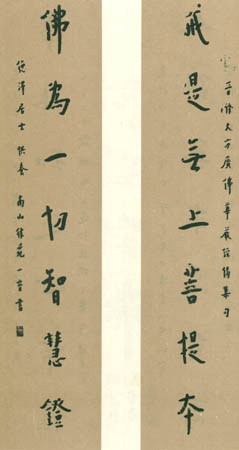 戒是無上菩提本
大方廣佛華嚴經偈集句
佛為一切智慧鐙
居士供養 南山律苑一音書